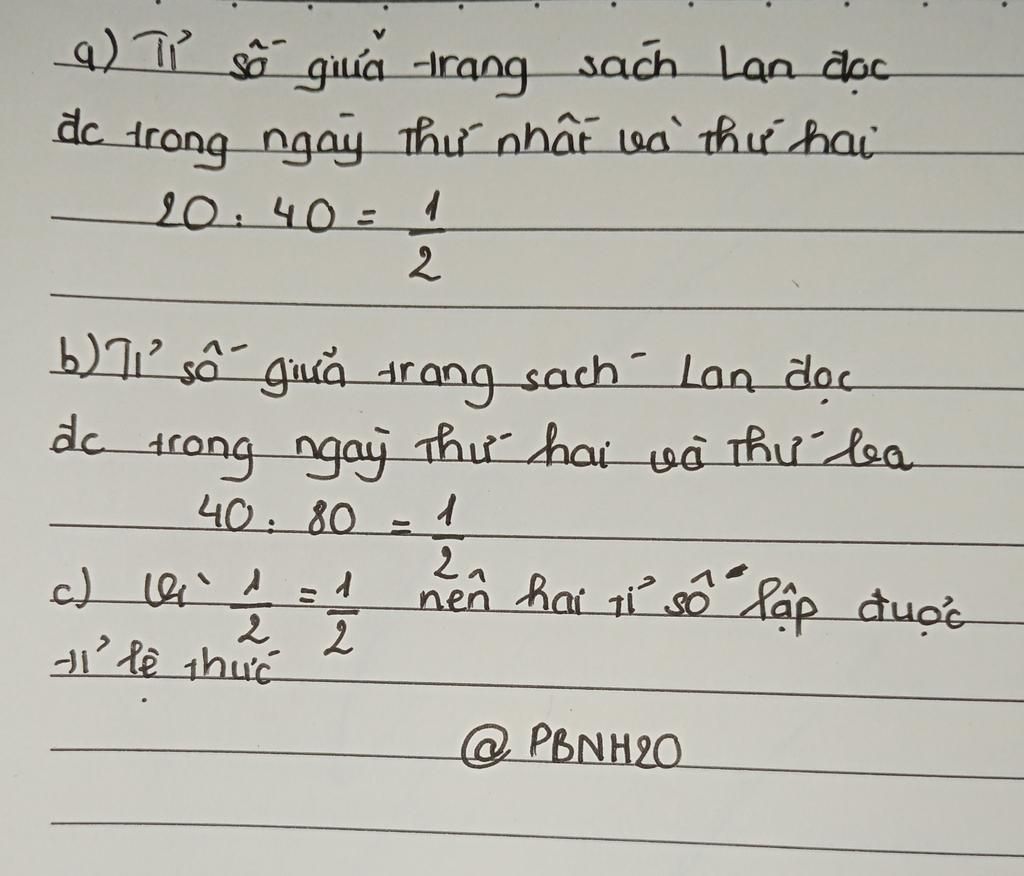 a) Tỉ số giữa trang sách Lan đọc
đc trong ngày thứ nhất và thứ hai
20 : 40 = 1/2
b) Tỉ số giữa trang sách Lan đọc
đc trong ngày thứ hai và thứ ba
40 : 80 = 1/2
c) Vì 1/2 = 1/2 nên hai tỉ số lập được
tỉ lệ thức
@ PBNH20